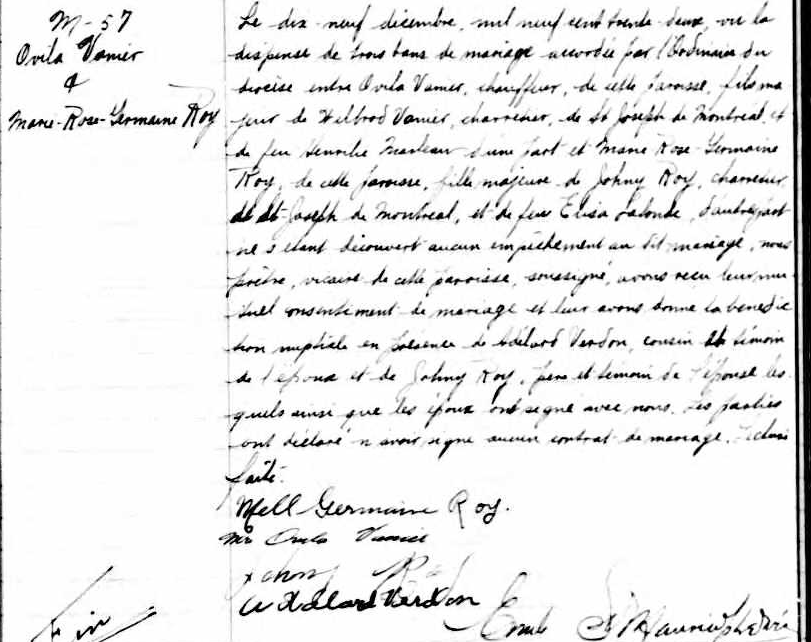 M-57
Ovila Vanier
&
Marie-Rose-Germaine Roy
Le dix-neuf décembre, mil neuf cent trente-deux, vu la
dispense de trois bans de mariage accordée par l'Ordinaire du
diocèse entre Ovila Vanier, chauffeur, de cette paroisse, fils ma
jeur de Wilbrod Vanier, charretier, de St Joseph de Montréal, et
de feu Marleau d'une part et Marie Rose-Germaine
Roy, de cette paroisse, fille majeure de Johny Roy, charretier,
de St-Joseph de Montréal, et de feu Elisa Lalonde, d'autre part
ne s'étant découvert aucun empêchement au dit mariage, nous
prêtre, vicaire de cette paroisse, soussigné, avons reçu leur mu
tuel consentement de mariage et leur avons donné la bénédic
tion nuptiale en présence de Adélard Verdon, cousin et témoin
de l'époux et de Johny Roy, père et témoin de l'épouse les
quels ainsi que les époux ont signé avec nous. Les parties
ont déclaré n'avoir signé aucun contrat de mariage. Lecture
faite.
Mell Germaine Roy.
Mr Ovila Vanier
John R
Adelard Verdon
Emile
Fin